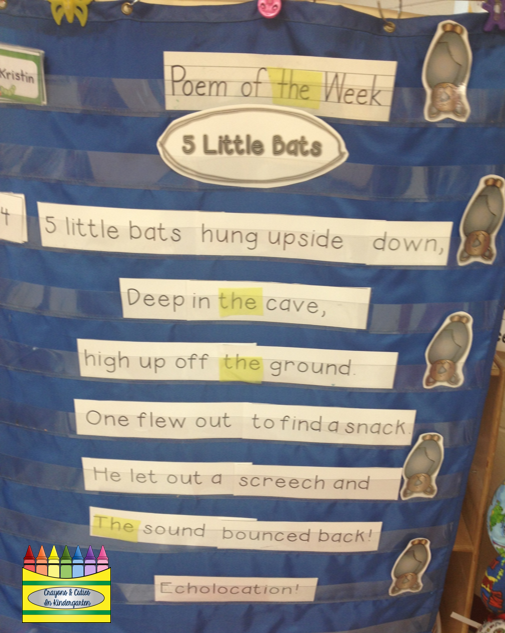 Kristin
Poem of the Week
5 Little Bats
4
5 little bats hung upside down,
Deep in the cave,
high up off the ground.
One flew out to find a snack
He let out a screech and
The sound bounced back!
Echolocation!
Crayons & Cuties
In Kindergarten